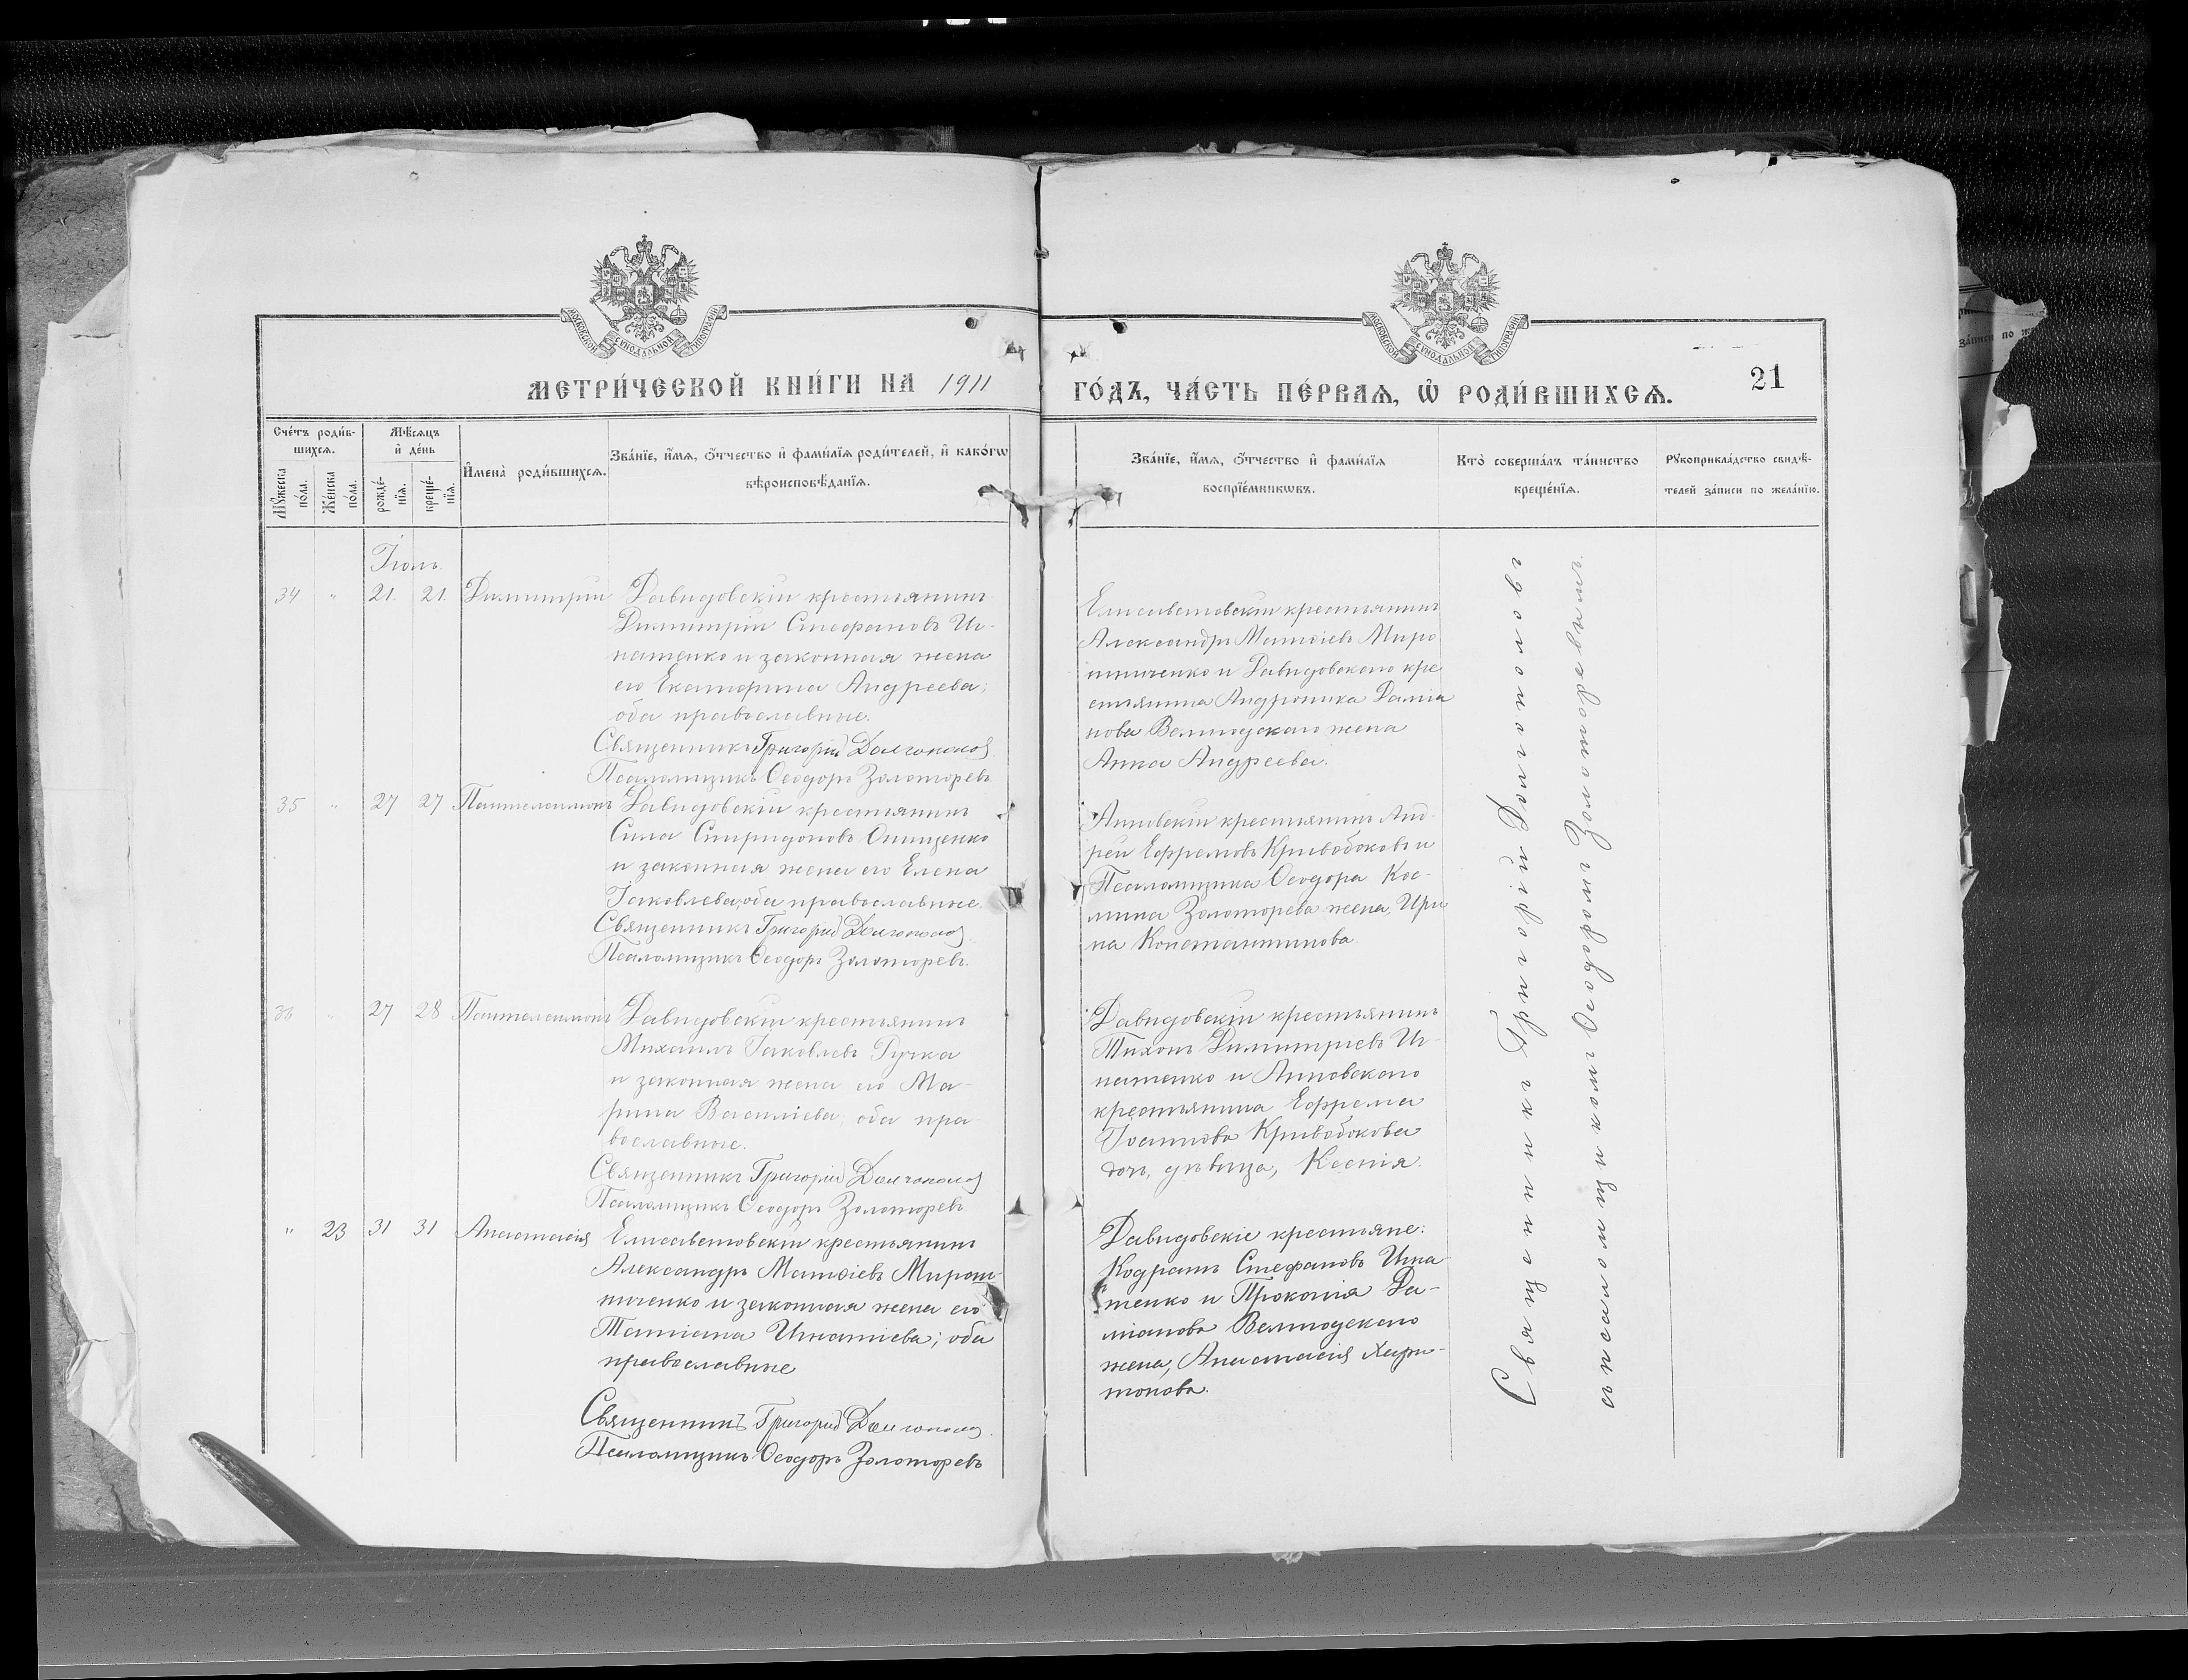 МОСКОВСКОЙ СѴНОДАЛЬНОЙ ТИПОГРАФІИ
МОСКОВСКОЙ СѴНОДАЛЬНОЙ ТИПОГРАФІИ
МЕТРИ́ЧЕСКОЙ КНИ́ГИ НА 1911
ГО́ДЪ, ЧА́СТЬ ПЕ́РВАѦ, Ѡ҆ РОДИ́ВШИХСѦ.
21
Сче́тъ роди́в-
шихсѧ.
Мꙋ́жеска
по́ла.
Же́нска
по́ла.
Мѣ́сѧцъ
и҆ де́нь
рожде́-
нїѧ.
креще́-
нїѧ.
И҆мена̀ роди́вшихсѧ.
Зва́нїе, и҆́мѧ, ѻ҆́тчество и҆ фами́лїѧ роди́телей, и҆ како́гѡ
вѣроисповѣ́данїѧ.
Зва́нїе, и҆́мѧ, ѻ҆́тчество и҆ фами́лїѧ
воспрїе́мникѡвъ.
Кто̀ соверша́лъ та́инство
креще́нїѧ.
Рꙋкоприкла́дство свидѣ́-
телей за́писи по жела́нїю.
Іюль.
34 " 21. 21. Димитрій
Давидовскій крестьянинъ
Димитрій Стефановъ Иг-
натенко и законная жена
его Екатерина Андреева;
оба православные.
Священникъ Григорій Долгополов
Псаломщикъ Ѳеодоръ Золоторевъ.
Елисаветовскій крестьянинъ
Александръ Матѳіевъ Миро
шниченко и Давидовскаго кре
стьянина Андроника Даміа
нова Велигодскаго жена
Анна Андреева.
35 " 27 27 Пантелеимонъ
Давидовскій крестьянинъ
Сила Спиридоновъ Онищенко
и законная жена его Елена
Іаковлева; оба православные.
Священникъ Григорій Долгополов
Псаломщикъ Ѳеодоръ Золоторевъ.
Анновскій крестьянинъ Анд-
рей Ефремовъ Кривобоковъ и
Псаломщика Ѳеодора Кос-
мина Золоторева жена, Ири
на Константинова.
36 " 27 28 Пантелеимонъ
Давидовскій крестьянинъ
Михаилъ Іаковлевъ Ручка
и законная жена его Ма-
рина Василіева; оба пра-
вославные.
Священникъ Григорій Долгополов
Псаломщикъ Ѳеодоръ Золоторевъ.
Давидовскій крестьянинъ
Тихонъ Димитріевъ Иг-
натенко и Анновскаго
крестьянина Ефрема
Іоаннова Кривобокова
дочь, дѣвица, Ксенія.
" 23 31 31 Анастасія
Елисаветовскій крестьянинъ
Александръ Матѳіевъ Мирош-
ниченко и законная жена его
Татіана Игнатіева; оба
православные
Священникъ Григорій Долгополов
Псаломщикъ Ѳеодоръ Золоторевъ
Давидовскіе крестьяне:
Кодратъ Стефановъ Игна
тенко и Прокопія Да-
міанова Велигодскаго
жена, Анастасія Хари-
тонова.
Священникъ Григорій Долгополовъ
съ псаломщикомъ Ѳеодоромъ Золоторевымъ.
за́писи по же